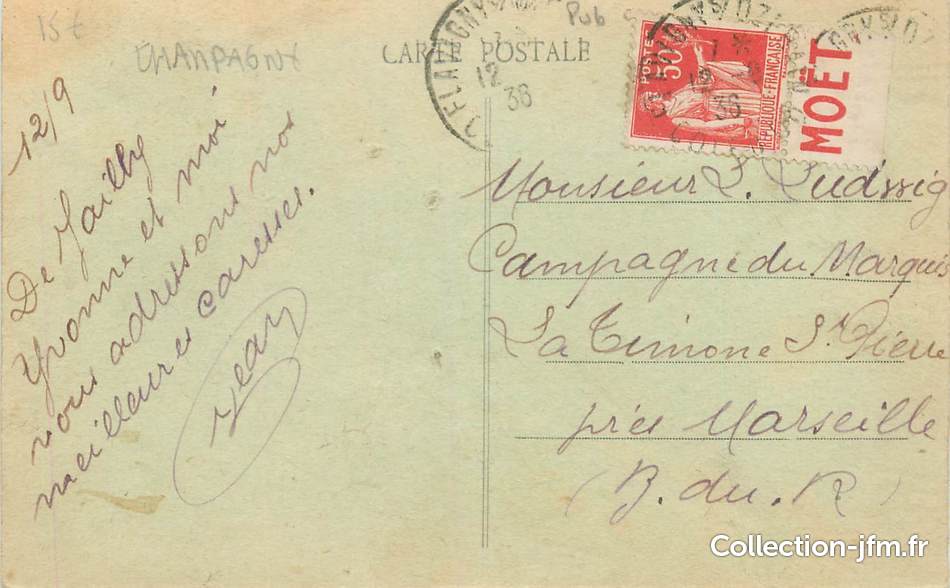 15€
CHAMPAGNE
Pub
CARTE POSTALE
FLAVIGNY S/ OZ
12
36
POSTES
50c
REPUBLIQUE FRANÇAISE
MOËT
12/9
De Jailly
Yvonne et moi
vous adressons nos
meilleures caresses.
Jean
Monsieur L. Ludwig
Campagne du Marquis
La Timone St Pierre
près Marseille
(B. du. R)
Collection-jfm.fr